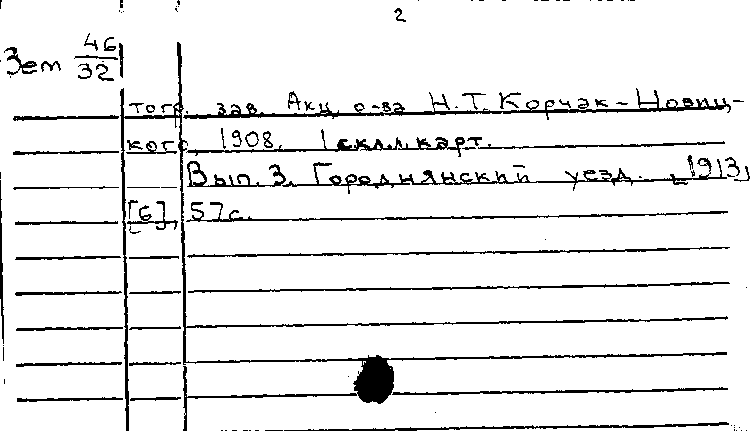 2
Зем 46
32
тогр. зав. Акц. о-ва Н.Т. Корчак-Новиц-
кого, 1908. 1 скл. л. карт.
Вып. 3. Городнянский уезд. [1913]
[6], 57 с.